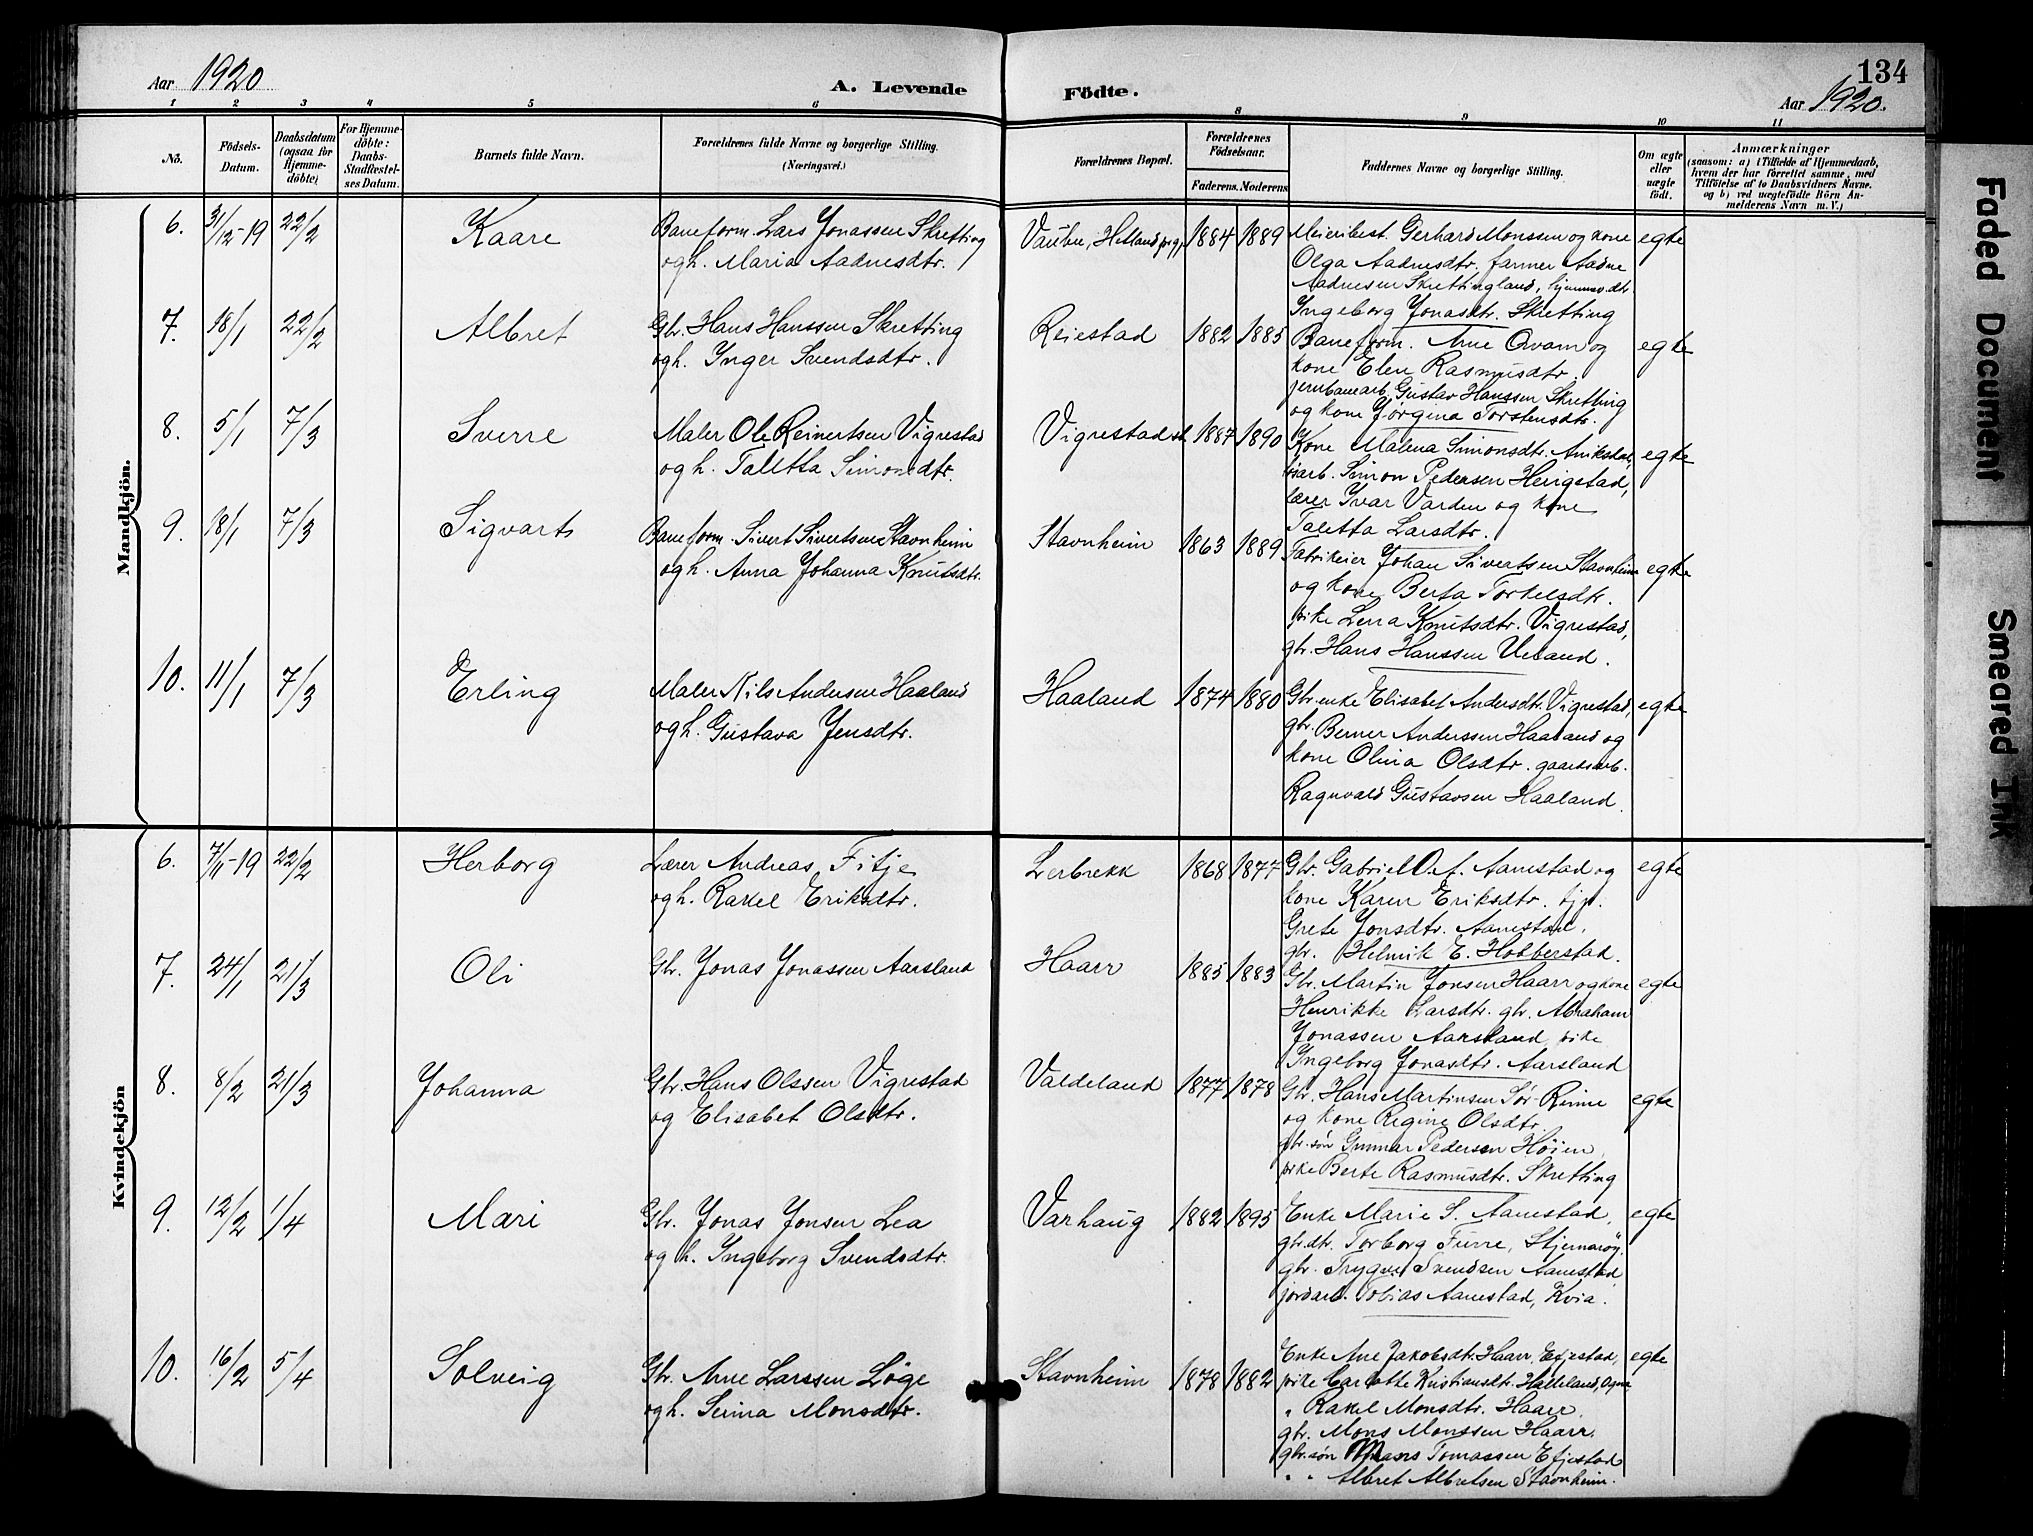 Aar 1920
A. Levende Födte.
134
Aar 1920.
1 2 3 4 5 6 8 9 10 11
No.
Födsels-Datum.
Daabsdatum (ogsaa for Hjemmedöbte)
For Hjemmedöbte: Daabs-Stadfæstelses Datum.
Barnets fulde Navn.
Forældrenes fulde Navne og borgerlige Stilling.
(Næringsvei.)
Forældrenes Bopæl.
Forældrenes Födselsaar.
Faderens. Moderens
Faddernes Navne og borgerlige Stilling.
Om ægte eller uægte födt.
Anmærkninger
(saasom: a) i Tilfælde af Hjemmedaab,
hvem der har forrettet samme, med
Tilföielse af to Daabsvidners Navne.
og b) ved uægtefödte Börn An-
melderens Navn m. V.)
Mandkjön.
6. 31/12-19 22/2 Kaare
Baneform. Lars Jonassen Skretting
og h. Maria Aadnesdtr.
1884 1889
Meieribest. Gerhard Monssen og kone
Olga Aadnesdtr. farmer Aadne
Aadnesen Skrettingland,
Ingeborg Jonasdtr. Skretting
egte
7. 18/1 22/2 Albret
Gbr. Hans Hanssen Skretting
og h. Inger Svendsdtr.
Reiestad 1882 1885
Baneform. Arne Qvam og
kone Elen Rasmusdtr.
jernbanearb. Gustav Hanssen Skretting
og kone Jørgina Torstensdtr.
egte
8. 5/1 7/3 Sverre
Maler Ole Reinertsen Vigrestad
og h. Taletta Simonsdtr.
Vigrestad st. 1887 1890
Kone Malena Simonsdtr.
Simon Pedersen
lærer Ivar Varden og kone
Taletta Larsdtr.
egte
9. 18/1 7/3 Sigvart
Baneform. Sivert Sivertsen Stavnheim
og h. Anna Johanna Knutsdtr.
Stavnheim 1863 1889
Fabrikeier Johan Sivertsen Stavnheim
og kone Berta Torkelsdtr.
pike Lena Knutsdtr. Vigrestad,
gbr. Hans Hanssen Ueland.
egte
10. 11/1 7/3 Erling
Maler Nils Andersen Haaland
og h. Gustava Jensdtr.
Haaland 1874 1880
Gbr. enke Elisabet Andersdtr. Vigrestad,
gbr. Berner Anderssen Haaland og
kone Olina Olsdtr. gaardsarb.
Ragnvald Gustavsen Haaland.
egte
Kvindekjön
6. 7/11-19 22/2 Herborg
Lærer Andreas Fitje
og h. Rakel Eriksdtr.
Lerbrekk 1868 1877
Gbr. Gabriel O.f. Aanestad og
kone Karen Eriksdtr. tjp.
Grete Jonsdtr. Aanestad,
gbr. Helmik E. Hobberstad.
egte
7. 24/1 21/3 Oli
Gbr. Jonas Jonassen Aarsland
Haarr 1885 1883
Gbr. Martin Jonsen Haarr og kone
Henrikke Larsdtr. gbr. Abraham
Jonassen Aarsland, pike
Ingeborg Jonasdtr. Aarsland
egte
8. 8/2 21/3 Johanna
Gbr. Hans Olssen Vigrestad
og Elisabet Olsdtr.
Valdeland 1877 1878
Gbr. Hans Martinsen Sør-Rinne
og kone Regine Olsdtr.
gbr. søn Gunnar Pedersen Høien,
pike Berte Rasmusdtr. Skretting
egte
9. 12/2 1/4 Mari
Gbr. Jonas Jonsen Lea
og h. Ingeborg Svendsdtr.
Varhaug 1882 1895
Enke Marie S. Aanestad,
gbr.dtr. Torborg Furre, Stjernarøy.
gbr. Trygve Svendsen Aanestad,
jordarb. Tobias Aanestad, Kvia.
egte
10. 16/2 5/4 Solveig
Gbr. Arne Larssen Løge
og h. Serina Monsdtr.
Stavnheim 1878 1882
Enke Ane Jakobsdtr. Haarr, Efjestad,
pike Carlotte Kristiansdtr. Halleland, Ogna
" Rakel Monsdtr. Haarr,
gbr. Mons Monssen Haarr,
gbr. søn Mons Tomassen Efjestad
" " Albret Albretsen Stavnheim.
egte
Faded Document
Smeared Ink